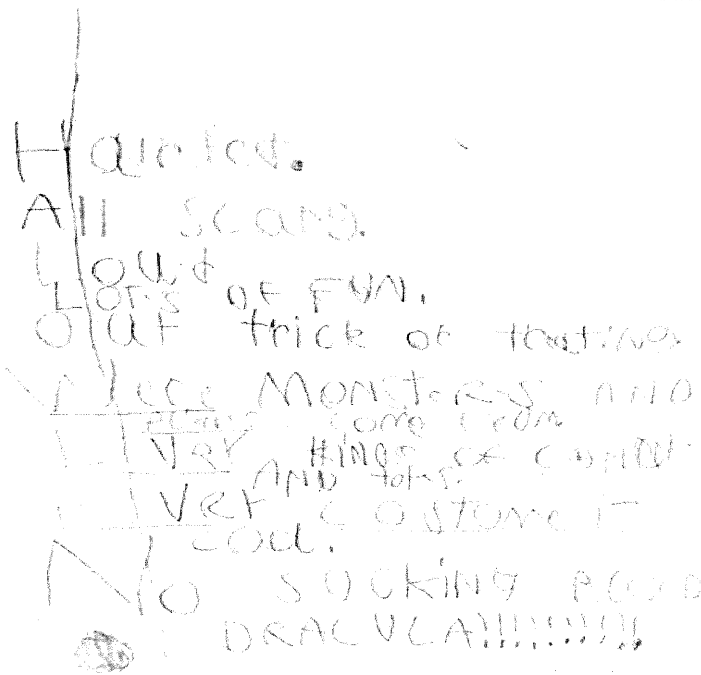 Haunted.
All scary.
Loud
Lots OF FUN.
OUT trick or treating
MONSTERS AND
come from
Ver KINGS OF CANDY
AND toys.
Ver COSTUME IT
cool.
No SUCKING BLOOD
DRACULA!!!!!!!!!